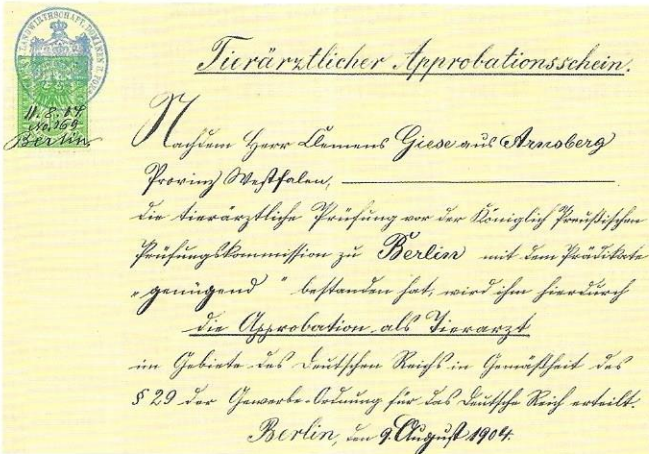 LANDWIRTHSCHAFT, DOMÄNEN U. FORS
11. 8. 04.
No. 169
Berlin
Tierärztlicher Approbationsschein.
Nachdem Herr Clemens Giese aus Arnsberg
Provinz Westfalen,
die tierärztliche Prüfung vor der Königlich Preußischen
Prüfungskommission zu Berlin mit dem Prädikate
„genügend" bestanden hat, wird ihm hierdurch
die Approbation als Tierarzt
im Gebiete des Deutschen Reichs in Gemäßheit des
§ 29 der Gewerbe-Ordnung für das Deutsche Reich erteilt.
Berlin, den 9. August 1904.